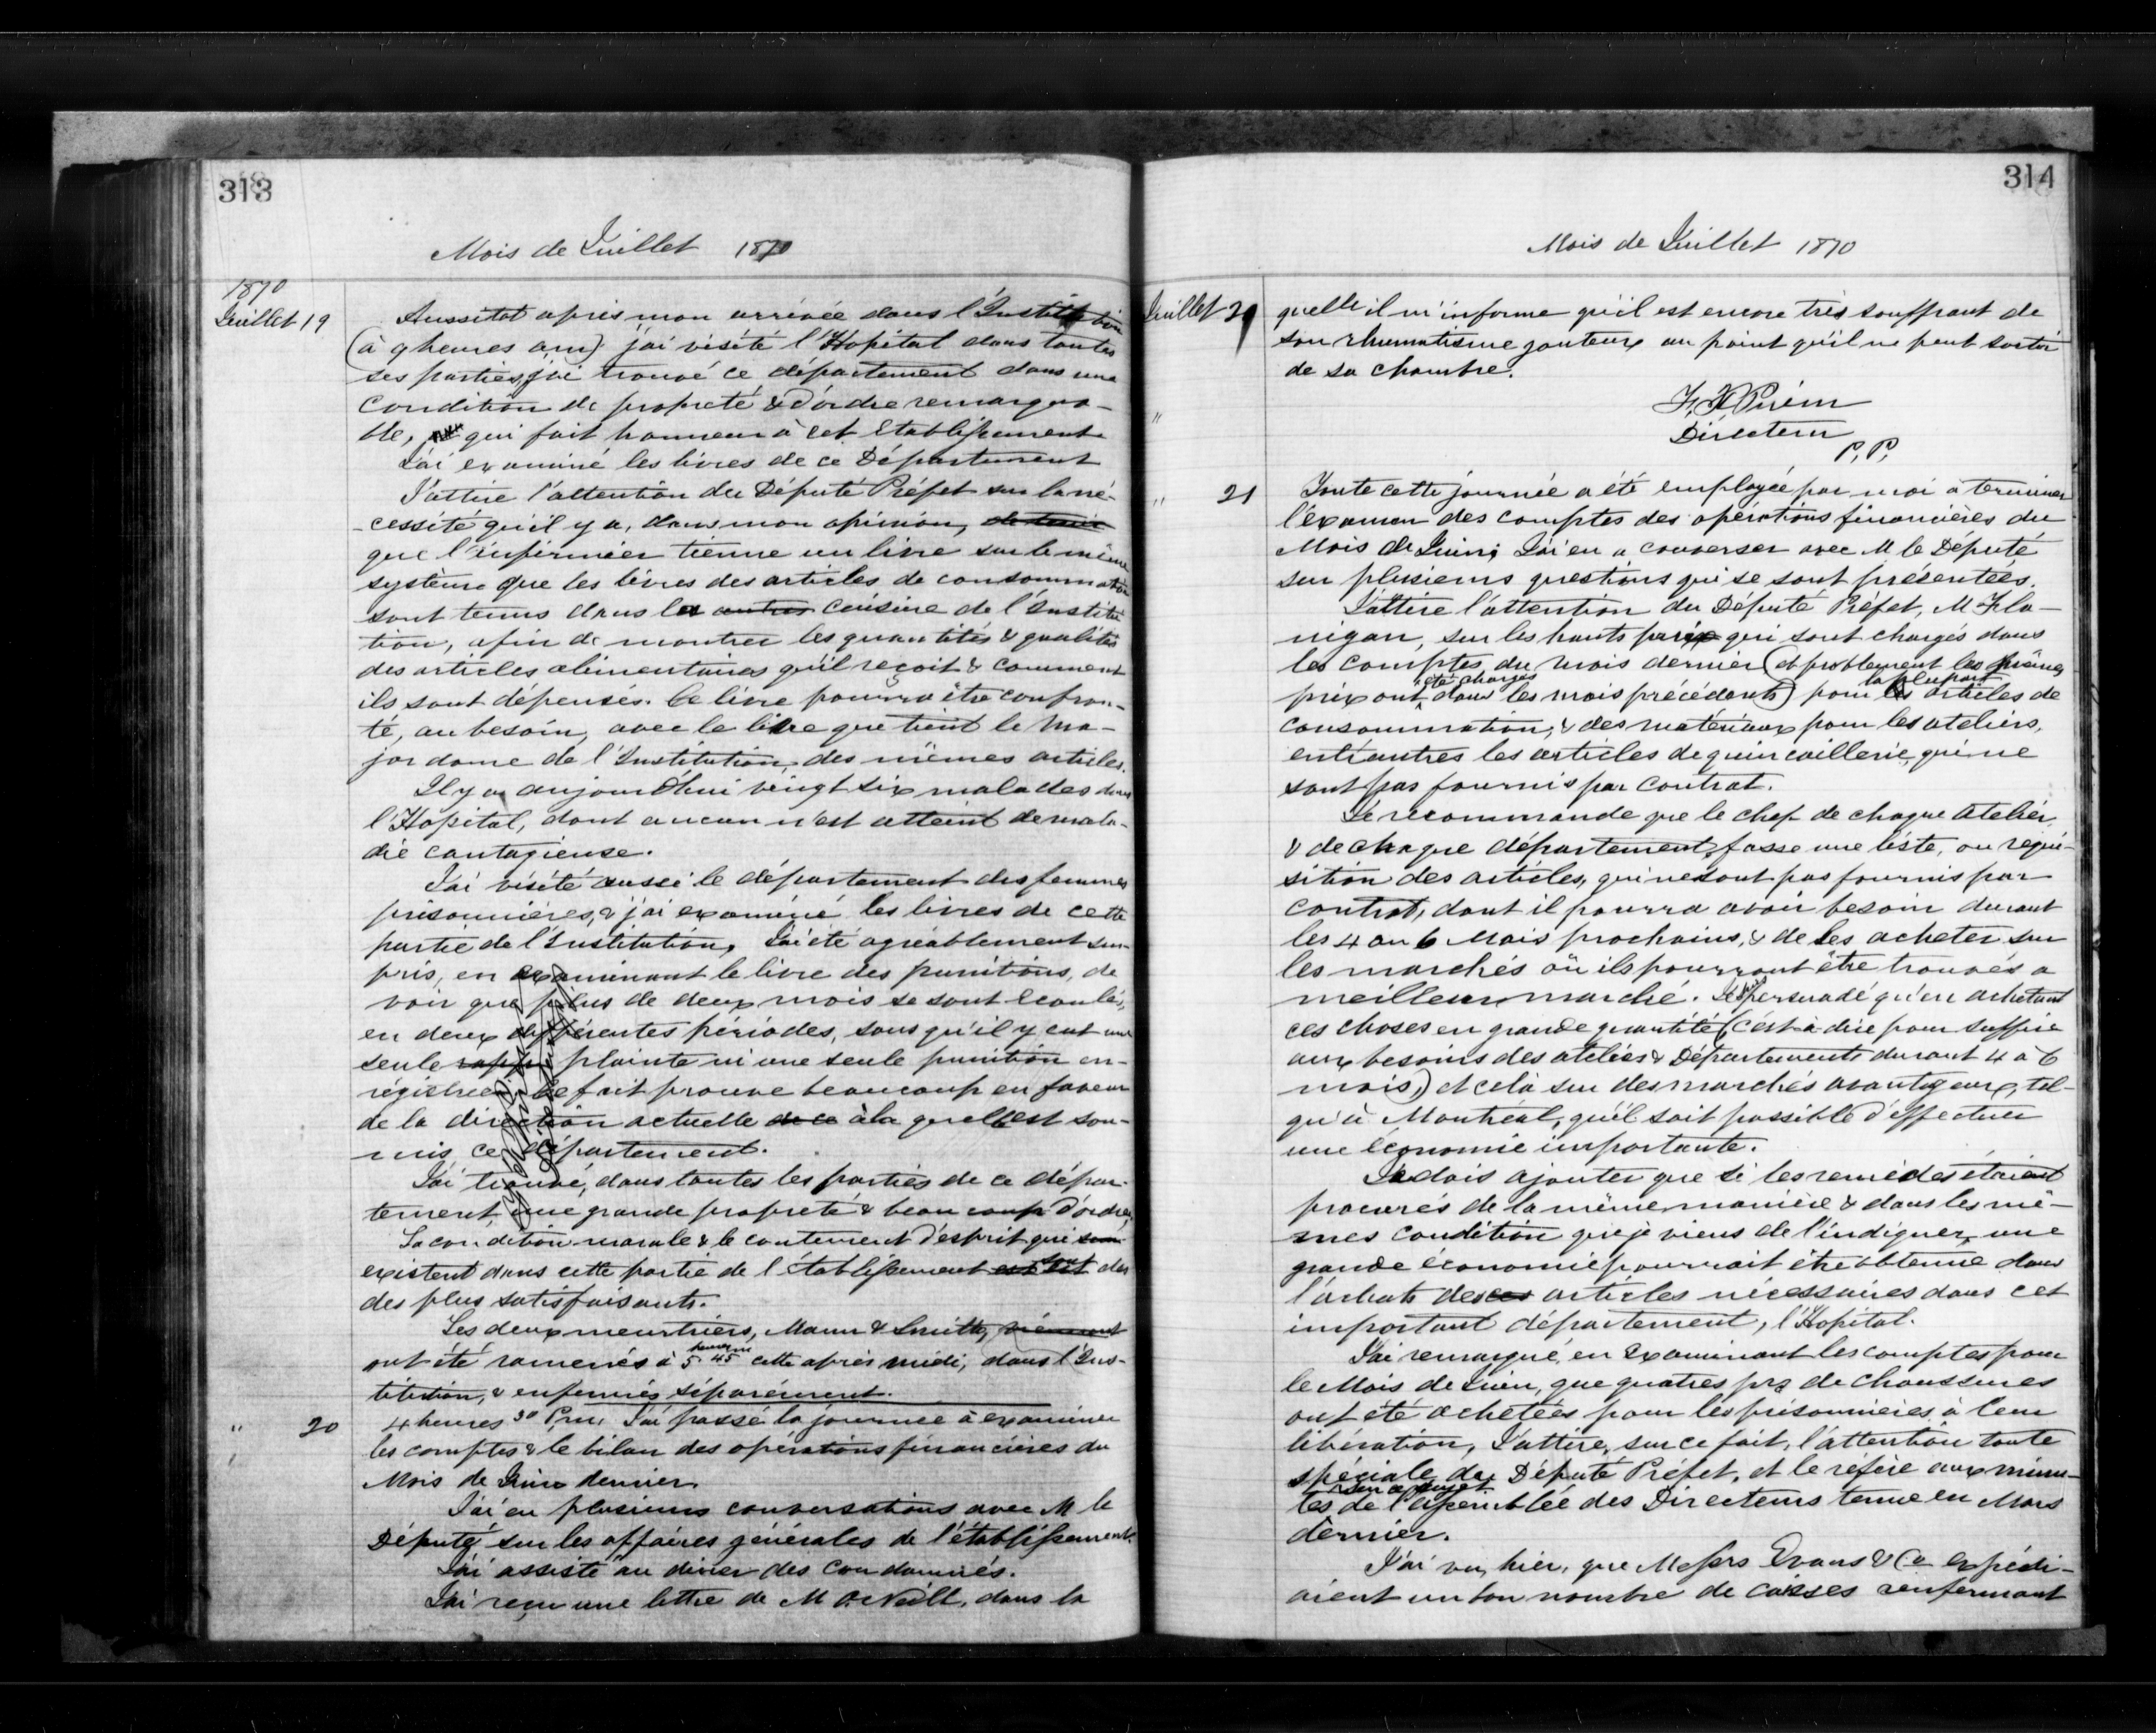 313
Mois de Juillet 1870
1870
Juillet 19
Aussitot après mon arrivée dans l'Institution
(à 9 heures a.m) j'ai visité l'Hopital dans toutes
ses parties, j'ai trouvé ce département dans une
condition de propreté & d'ordre remarqua-
ble, qui fait honneur à cet Etablissement.
J'ai examiné les livres de ce Département
J'attire l'attention du Député Préfet sur la né-
-cessité qu'il y a, dans mon opinion, de tenir
que l'infirmier tienne un livre sur le même
système que les livres des articles de consommation
sont tenus dans la autres cuisine de l'Institu
tion, afin de montrer les quantités & qualités
des articles alimentaires qu'il reçoit & comment
ils sont dépensés. Ce livre pourra être confron-
té, au besoin, avec le livre que tient le Ma-
jor dome de l'Institution, des mêmes articles.
Il y a aujourd'hui vingt six malades dans
l'Hopital, dont aucun n'est atteint de mala-
die contagieuse.
J'ai visité aussi le département des femmes
prisonnières, & j'ai examiné les livres de cette
partie de l'Institution, J'ai été agréablement sur-
pris, en examinant le livre des punitions, de
voir que plus de deux mois se sont écoulés,
en deux différentes périodes, sans qu'il y eut une
seule plainte ni une seule punition en-
régistrée. Ce fait prouve beaucoup en faveur
de la direction actuelle de ce à la quelle est sou-
mis ce département.
J'ai trouvé, dans toutes les parties de ce dépar-
tement, une grande propreté & beaucoup d'ordre,
La condition morale & le contentement d'esprit que
existent dans cette partie de l'établissement est sont des
des plus satisfaisants.
Les deux meurtriers, Mann & Smith,
ont été ramenés à 5.45 cette après midi, dans l'Ins-
titution, & enfermés séparément.
" 20
4 heures 30 P.m. J'ai passé la journée à examiner
les comptes & le bilan des opérations financières du
Mois de Juin dernier.
J'ai eu plusieurs conversations avec M le
Député sur les affaires générales de l'établissement.
J'ai assisté au diner des condamnés.
J'ai reçu une lettre de M O'Neill, dans la
314
Mois de Juillet 1870
Juillet
quelle il m'informe qu'il est encore très souffrant de
son rhumatisme gouteux au point qu'il ne peut sortir
de sa chambre.
"
Directeur
P. P.
" 21
Toute cette journée a été employée par moi à terminer
l'examen des comptes des opérations financières du
Mois de Juin; J'ai eu a converser avec M le Député
sur plusieurs questions qui se sont présentées.
J'attire l'attention du Député Préfet, M Fla-
nigan, sur les hauts prix qui sont chargés dans
les comptes du mois dernier (et probablement les mêmes
prix ont été chargés dans les mois précédents) pour la plupart les articles de
consommation, & des matériaux pour les ateliers,
entr'autres les articles de quincaillerie, qui ne
sont pas fournis par contrat.
Je recommande que le chef de chaque atelier,
& de chaque département, fasse une liste, ou réqui-
sition des articles, qui ne sont pas fournis par
contrat, dont il pourra avoir besoin durant
les 4 ou 6 Mois prochains, & de les acheter sur
les marchés où ils pourront être trouvés a
meilleur marché. Je suis persuadé qu'en achetant
ces choses en grande quantité (c'est à dire pour suffire
aux besoins des ateliers & Départements durant 4 à 6
mois,) et celà sur des marchés avantageux, tel-
qu'à Montreal, qu'il soit possible d'effectuer
une économie importante.
Je dois ajouter que si les remèdes étaient
procurés de la même manière & dans les mê-
mes condition que je viens de l'indiquer, une
grande économie pourrait être obtenue dans
l'achats des ces articles nécessaires dans cet
important département, l'Hopital.
J'ai remarqué, en examinant les comptes pour
le Mois de Juin, que quatres prs de chaussures
ont été achetées pour les prisonnières à leur
libération, J'attire, sur ce fait, l'attention toute
spéciale du Député Préfet, et le réfère aux minu-
tes sur ce sujet de l'assemblée des Directeurs tenue en Mars
dernier.
J'ai vu, hier, que Messrs Evans & Co expédi-
aient un bon nombre de caisses renfermant